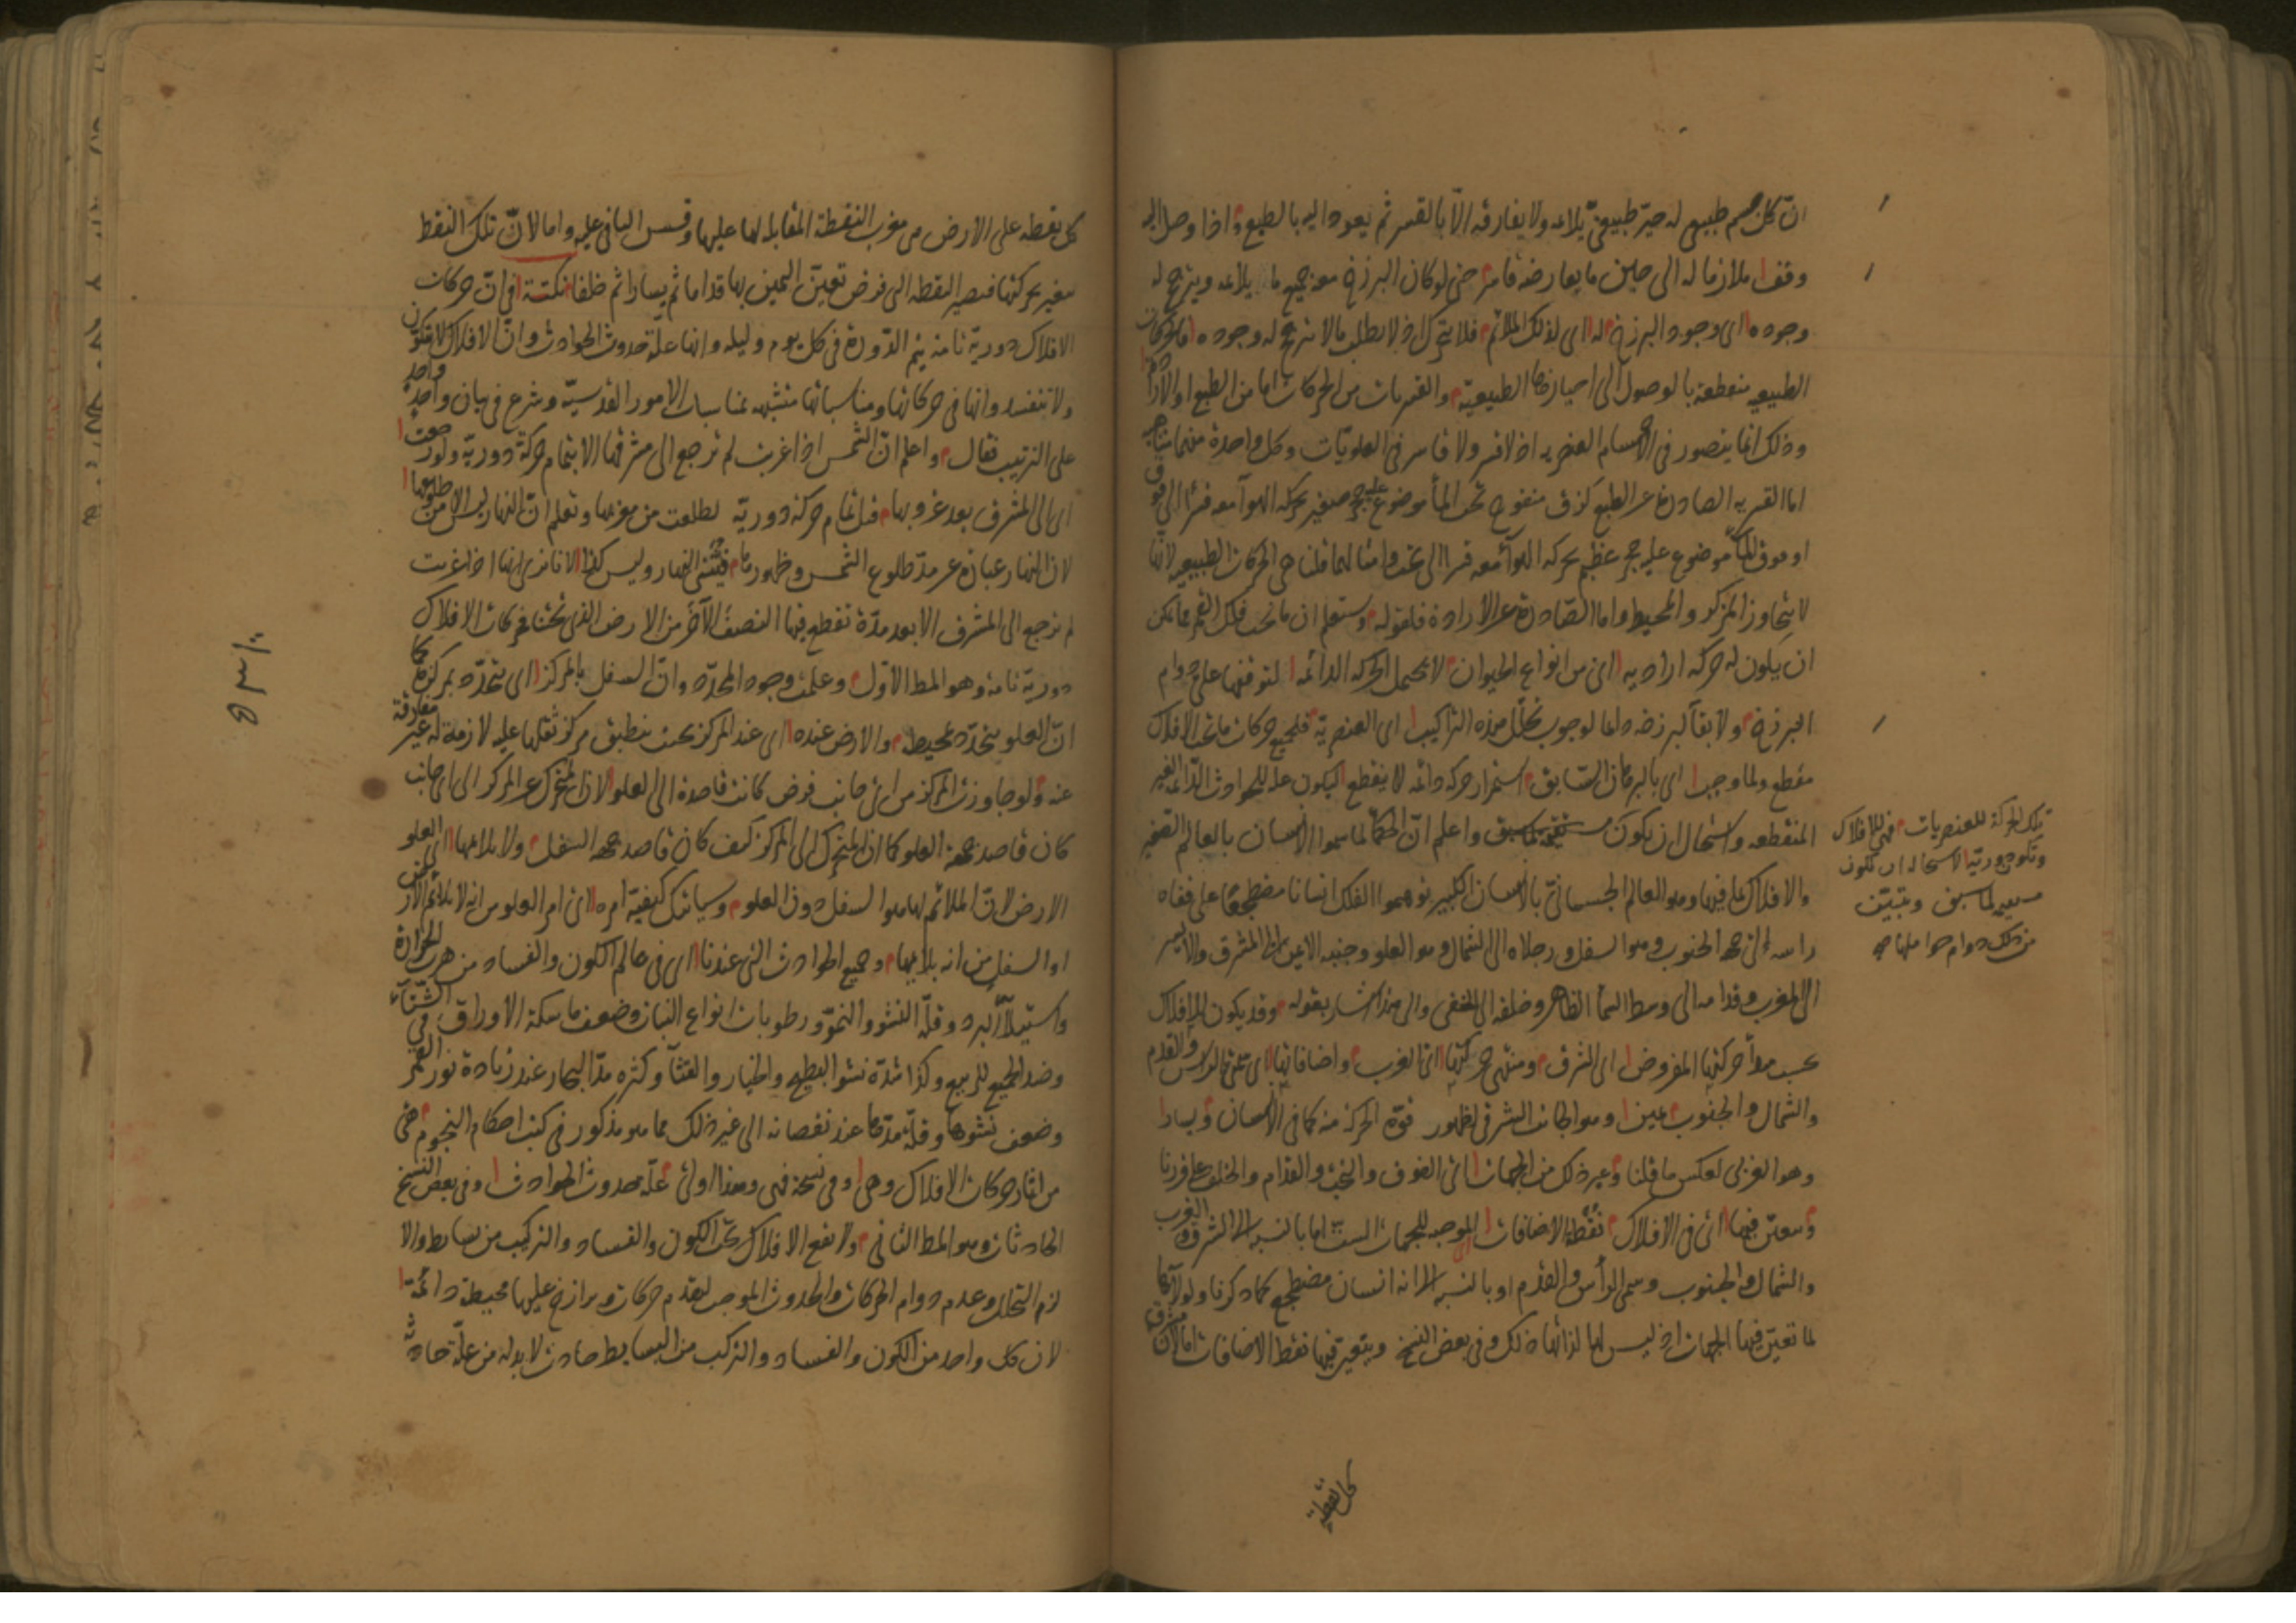 انّ كلّ جسم طبيعى له حيّز طبيعىّ يلائمه ولا يفارقه الّا بالقسر ثم يعود اليه بالطبع واذا وصل اليه
وقف ملازما له الى حين ما يعارضه قاسر حتى لو كان البرزخ معه جميع ما يلائمه ويترجح له
وجوده اى وجود البرزخ له اى لذلك الملائم فلا يتحرك اذ لا يطلب ما لا يترجح له وجوده فالحركات
الطبيعيه منقطعة بالوصول الى احيازها الطبيعية والقسريات من الحركات اما من الطبع او الارادة
وذلك انما يتصور فى الاجسام العنصريه اذ لا قسر ولا قاسر فى العلويّات وكل واحدة منهما متناهيه
اما القسريه الصادرة عن الطبع كزق منفوخ تحت الماء موضوع عليه حجر صغير يحركه الهوآء معه قسرا الى فوق
او فوق الماء موضوع عليه حجر عظيم يحركه الهوآء معه قسرا الى تحت وامثالها فلنا هى الحركات الطبيعيه لانها
لا يتجاوز المركز والمحيط واما الصّادرة عن الارادة فلقوله وستعلم ان ما تحت فلك القمر مما يمكن
ان يكون له حركه اراديه اى من انواع الحيوان لا يحتمل الحركه الدائمه لتوقفها على دوام
البرزخ ولا بقآء لبرزخه دائما لوجوب تحلّل هذه التراكيب اى العنصريّة فلجميع حركات ما تحت الافلاك
مقطع ولما وجب اى بالبرهان السّابق استمرار حركه دائمه لا ينقطع ليكون علة للحوادث الدّائمه الغير
المنقطعه واستحال ان يكون مستقيمة لما سبق واعلم انّ الحكمآء لما سموا الانسان بالعالم الصّغير
والافلاك بما فيها وهو العالم الجسمانىّ بالانسان الكبير توهموا الفلك انسانا مضطجعا على قفاه
راسه الى جهة الجنوب وهو السفل ورجلاه الى الشمال وهو العلو وجنبه الايمن الى المشرق والايسر
الى المغرب وقدامه الى وسط السمآء الظاهر وخلفه الى الخفى والى هذا اشار بقوله وقد يكون للافلاك
بحسب مبدأ حركتها المفروض اى الشرق ومنتهى حركتها اى الغرب واضافاتها اى تعين الراس والقدم
والشمال والجنوب يمين وهو الجانب الشرقى لظهور قوّة الحركة منه كما فى الانسان ويسار
وهو الغربى لعكس ما قلنا وغير ذلك من الجهات اى الفوق والتحت والقدام والخلف على ما قررنا
ويتعين فيها اى فى الافلاك نقط الاضافات الموجبه للجهات الست اما بالنسبه الى الشرق والغرب
والشمال والجنوب وسمى الرأس والقدم او بالنسبه الى انه انسان مضطجع كما ذكرنا ولولاها
لما تعيّن فيها الجهات اذ ليس لها لذاتها ذلك وفى بعض النسخ ويتغير فيها نقط الاضافات امّا لانّ مشرق
تلك الحركة للعنصريات فهى للافلاك
وتكون دورية لاستحالة ان تكون
مستقيمة لما سبق ويتبيّن
من ذلك دوام حواملها
كل نقطة
كل نقطه على الارض هى مغرب النقطة المقابله لها عليها وقس الباقى عليه واما لانّ تلك النقط
يتغير بحركتها فتصير النقطه التى فرض تعيّن اليمين بها قداما ثم يسارا ثم خلفا نكتة فى انّ حركات
الافلاك دوريّة تامة يتم الدّورة فى كل يوم وليله وانها علّة حدوث الحوادث وانّ الافلاك لا تتكون
ولا تنفسد وانها فى حركاتها ومناسباتها متشبهه بمناسبات الامور القدسيّه وشرع فى بيان واحد واحد
على الترتيب فقال واعلم انّ الشمس اذا غربت لم ترجع الى مشرقها الا بتمام حركة دوريّة ولو رجعت
اى الى المشرق بعد غروبها قبل تمام حركة دوريّة لطلعت من مغربها وتعلم انّ النهار ليس الا من طلوعها
لان النهار عبارة عن مدّة طلوع الشمس وظهورها فيتثنى النهار وليس كذا لانا نرى انها اذا غربت
لم ترجع الى المشرق الا بعد مدّة تقطع فيها النصف الآخر من الارض الذى تحتنا فحركات الافلاك
دوريّة تامة وهو المط الاول وعلمت وجود المحدّد وانّ السفل بالمركز اى يتحدّد بمركزه كما
انّ العلو يتحدّد بمحيطه والارض عنده اى عند المركز بحيث ينطبق مركز ثقلها عليه لازمة له غير مفارقة
عنه ولو جاوزت المركز من اىّ جانب فرض كانت قاصدة الى العلو لان المتحرك عن المركز الى اى جانب
كان قاصد جهة العلو كما ان المتحرك الى المركز كيف كان قاصد جهة السفل ولا يلائمها اى العلو
الارض لانّ الملائم لها هو السفل دون العلو وسياتيك كيفيّة امره اى امر العلو من انه لا يلائم الارض
او السفل من انه يلائمها وجميع الحوادث التى عندنا اى فى عالم الكون والفساد من هرب الحرارة
واستيلآء البرد وقلّة النشو والنموّ ورطوبات انواع النبات وضعف ماسكة الاوراق فى الشّتآء
وضد الجميع للربيع وكذا شدّة نشو البطيخ والخيار والقثآء وكثره مدّ البحار عند زيادة نور القمر
وضعف نشوها وقلّة مدّها عند نقصانه الى غير ذلك مما هو مذكور فى كتب احكام النجوم هى
من آثار حركات الافلاك وهى وفى نسخة فهى وهذا اولى علّة حدوث الحوادث وفى بعض النسخ
الحادثات وهو المط الثانى ولا يقع الافلاك تحت الكون والفساد والتركيب من بسايط والا
لزم التحلل وعدم دوام الحركات والحدوث الموجب لتقدم حركات وبرازخ عليها محيطة دائمة
لان كل واحد من الكون والفساد والتركيب من البسايط حادث لا بد له من علّة حادثه